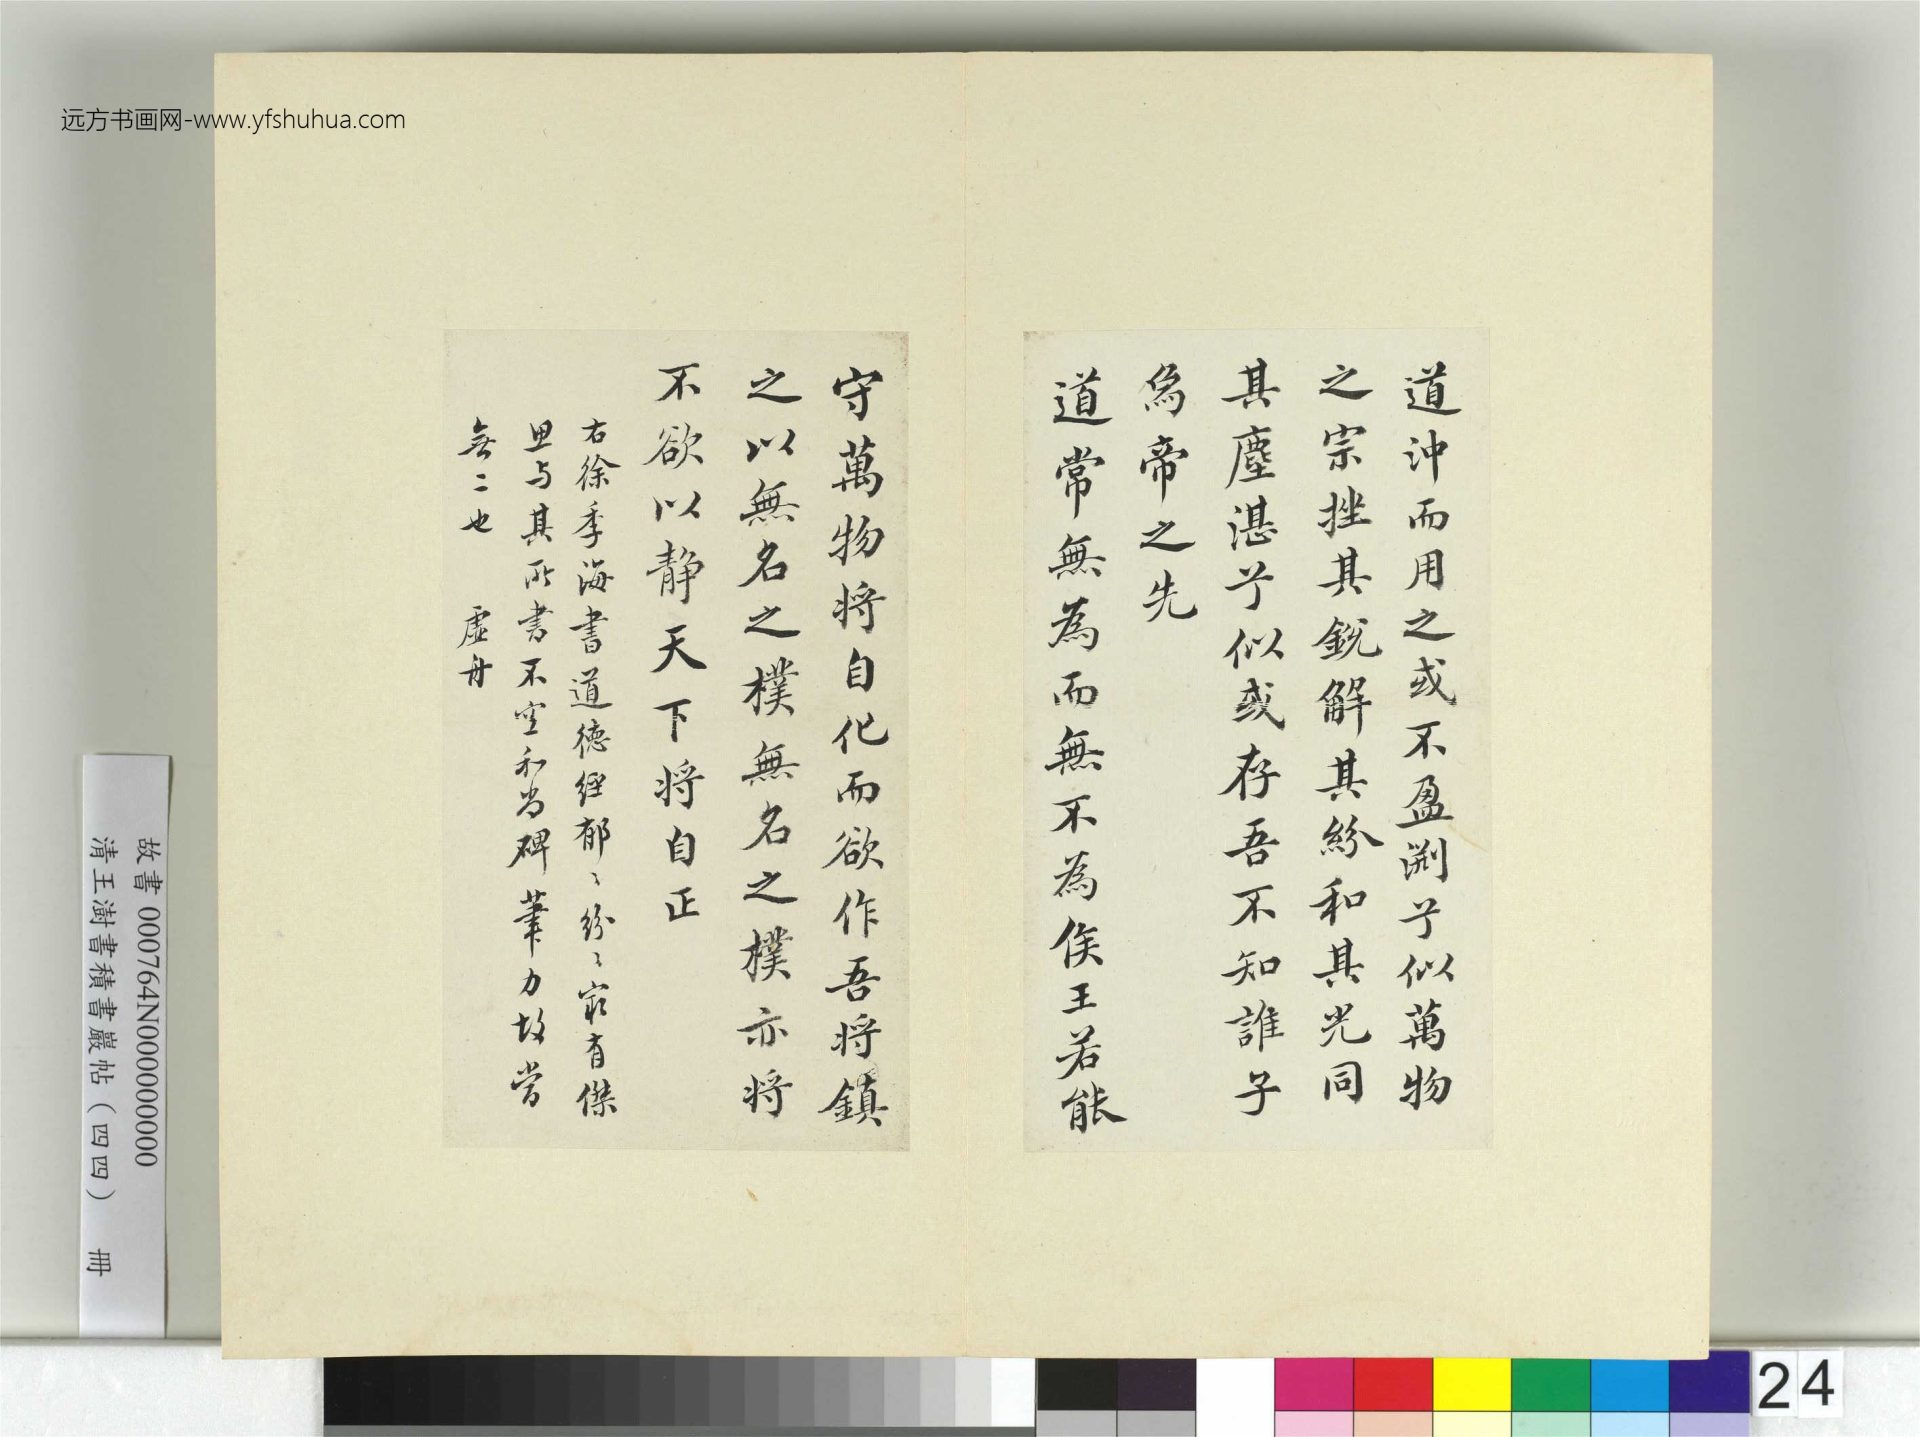 远方书画网-www.yfshuhua.com
道沖而用之或不盈淵兮似萬物
之宗挫其銳解其紛和其光同
其塵湛兮似或存吾不知誰子
為帝之先
道常無為而無不為侯王若能
守萬物將自化而欲作吾將鎮
之以無名之樸無名之樸亦將
不欲以静天下將自正
右徐季海書道德經郁〻紛〻寂有傑
思与其所書不空和尚碑筆力故當
無二也 虛舟
故書 000764N000000000
清王澍書積書巖帖(四四) 冊
24